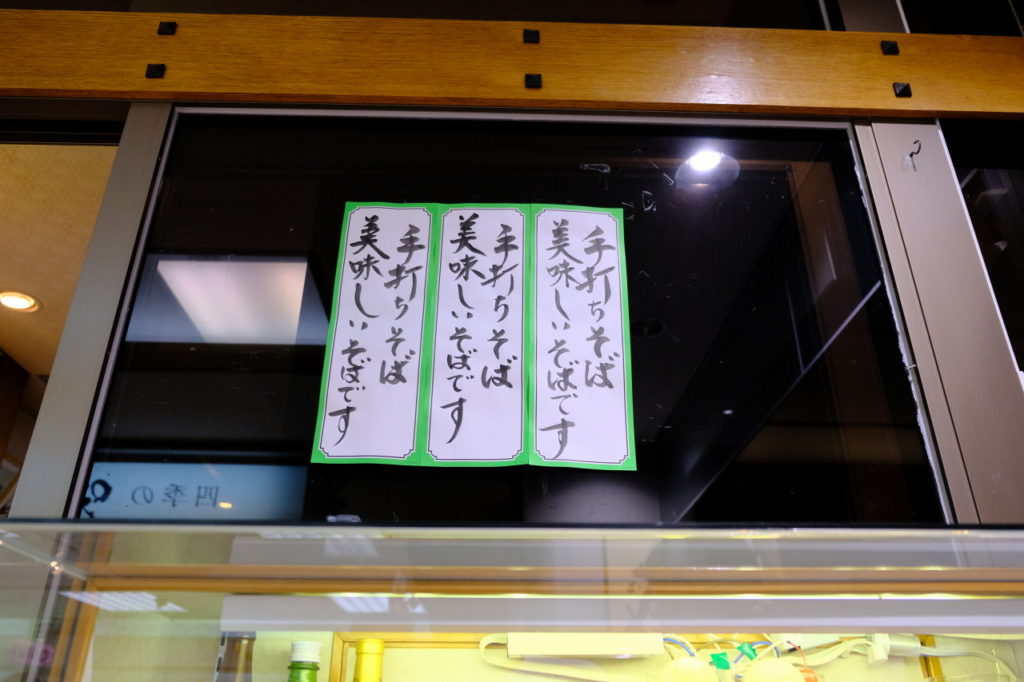 手打ちそば
美味しいそばです
手打ちそば
美味しいそばです
手打ちそば
美味しいそばです
四季の